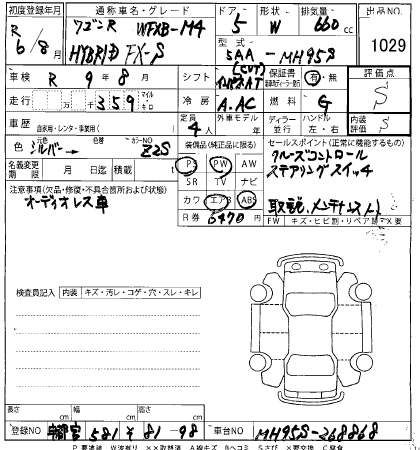 初度登録年月 通称車名・グレード ドア 形状 排気量 出品NO
R 6/8月 ワゴンR WFXB-M4 5 W 660 cc 1029
HYBRID FX-S 型式 5AA-MH95S
車検 R 9年8月 シフト (CVT) 保証書 有・無 評価点
走行 万 千 359 マイル キロ 冷房 A.AC 燃料 G S
車歴 自家用・レンタ・事業用( ) 定員 4人 外車モデル 年 ディーラー 並行 ハンドル 左・右 内装評価 S
色 シルバー 色替 カラーNO Z2S 装備品(純正品に限る) セールスポイント(正常に機能するもの)
名義変更期限 月 日迄 積載 t PS PW AW クルーズコントロール
注意事項(欠品・修復・不具合箇所および状態) SR TV ナビ ステアリングスイッチ
オーディオレス車 カワ エアB ABS 取説、メンテナンスノート
R券 6470円 FW キズ・ヒビ割・リペア
検査員記入 内装 キズ・汚レ・コゲ・穴・スレ・キレ
長さ cm 幅 cm 高さ cm
登録NO 宇都宮 581 や 81-98 車台NO MH95S-268868
P要塗装 W波有り ××取替済 A線キズ Bヘコミ Sさび ×要交換 C腐食